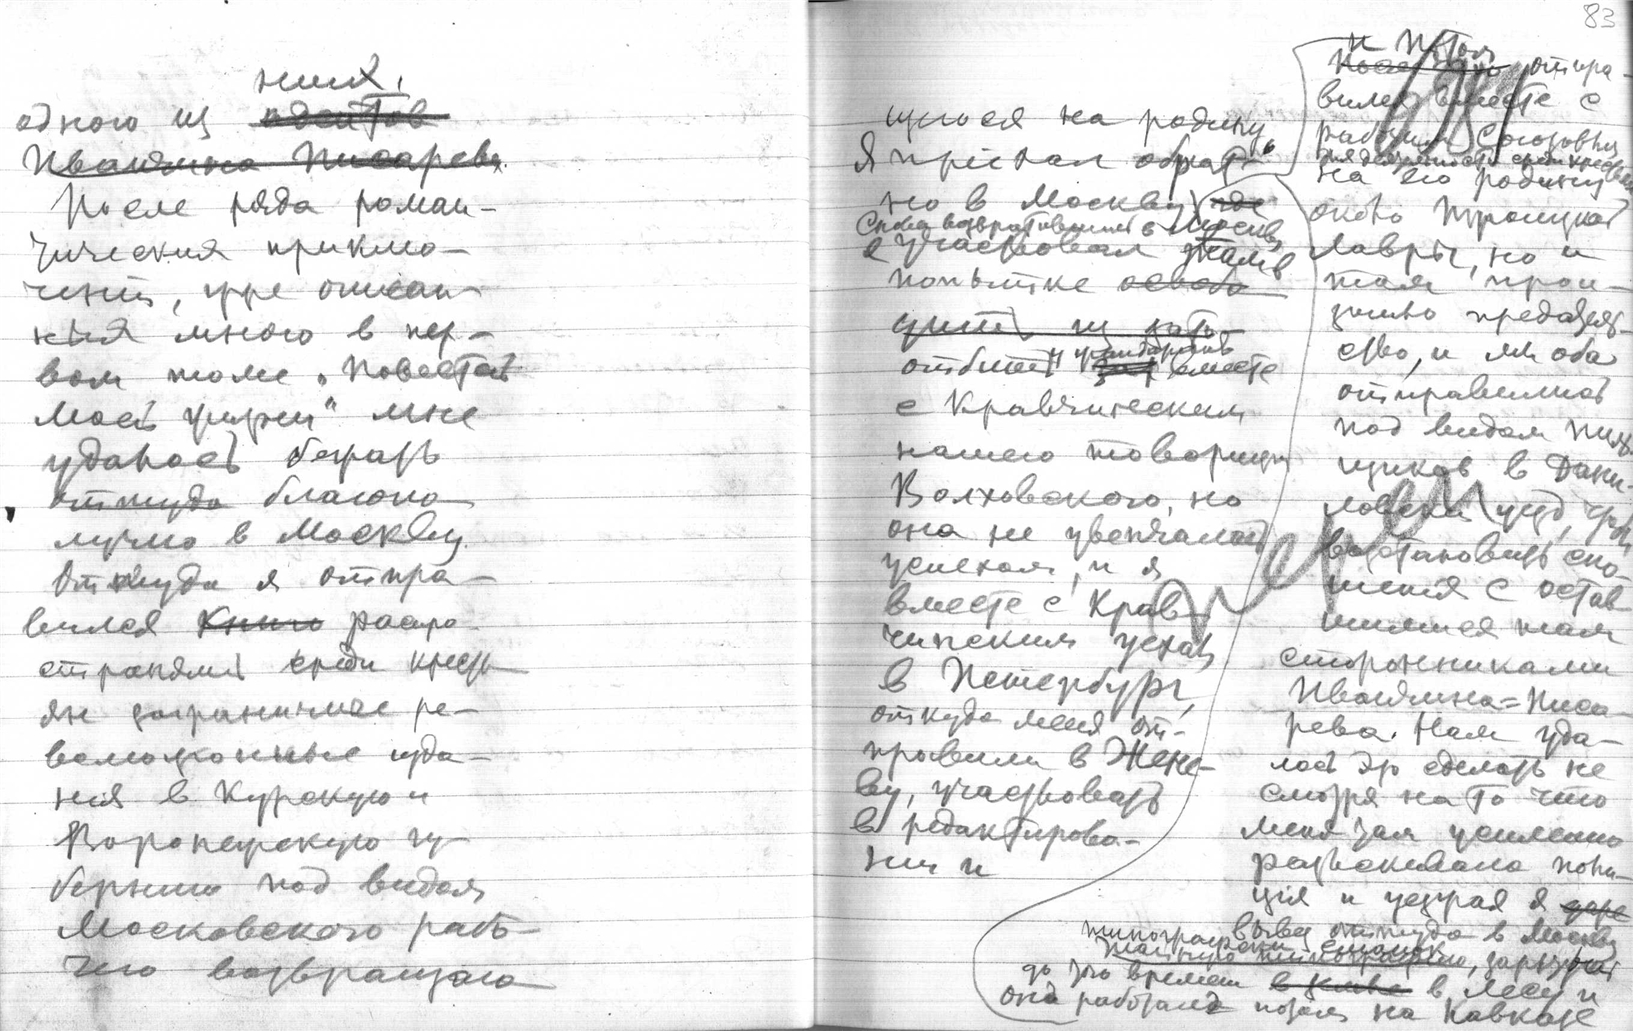 них.
одного из агентов
Иванчина Писарева.
После ряда роман-
ических приклю-
чений, уже описан-
ных много в пер-
вом томе „Повестей
моей жизни" мне
удалось бежать
оттуда благопо-
лучно в Москву
Откуда я отпра-
вился распро-
странять среди кресть-
ян заграничные ре-
волюционные изда-
ния в Курскую и
Воронежскую гу-
бернию под видом
Московского рабо-
чего возвращаю-
83
щегося на родину
Я приехал обрат-
но в Москву где
Снова возвратившись в Москву
я участвовал там в
попытке освобо-
дить из
отбить у жандармов вместе
с Кравчинским
нашего товарища
Волховского, но
она не увенчалась
успехом, и я
вместе с Крав-
чинским уехал
в Петербург,
откуда меня от-
правили в Жене-
ву, участвовать
в редактирова-
нии и
и потом
отпра-
вился вместе с
рабочим Союзовым
для деятельности среди крестьян
на его родину
около Троицкой
Лавры, но и
там прои-
зошло предатель-
ство, и мы оба
отправились
под видом пиль-
щиков в Дани-
ловский уезд, чтоб
восстановить сно-
шения с остав-
шимися там
сторонниками
Иванчина=Писа-
рева. Нам уда-
лось это сделать не
смотря на то что
меня там усиленно
разыскивала поли-
ция и уезжая я
вывез оттуда в Москву
типографский станок
тайную типографию, зарытый
до того времени в лесу и
она работала потом на Кавказе